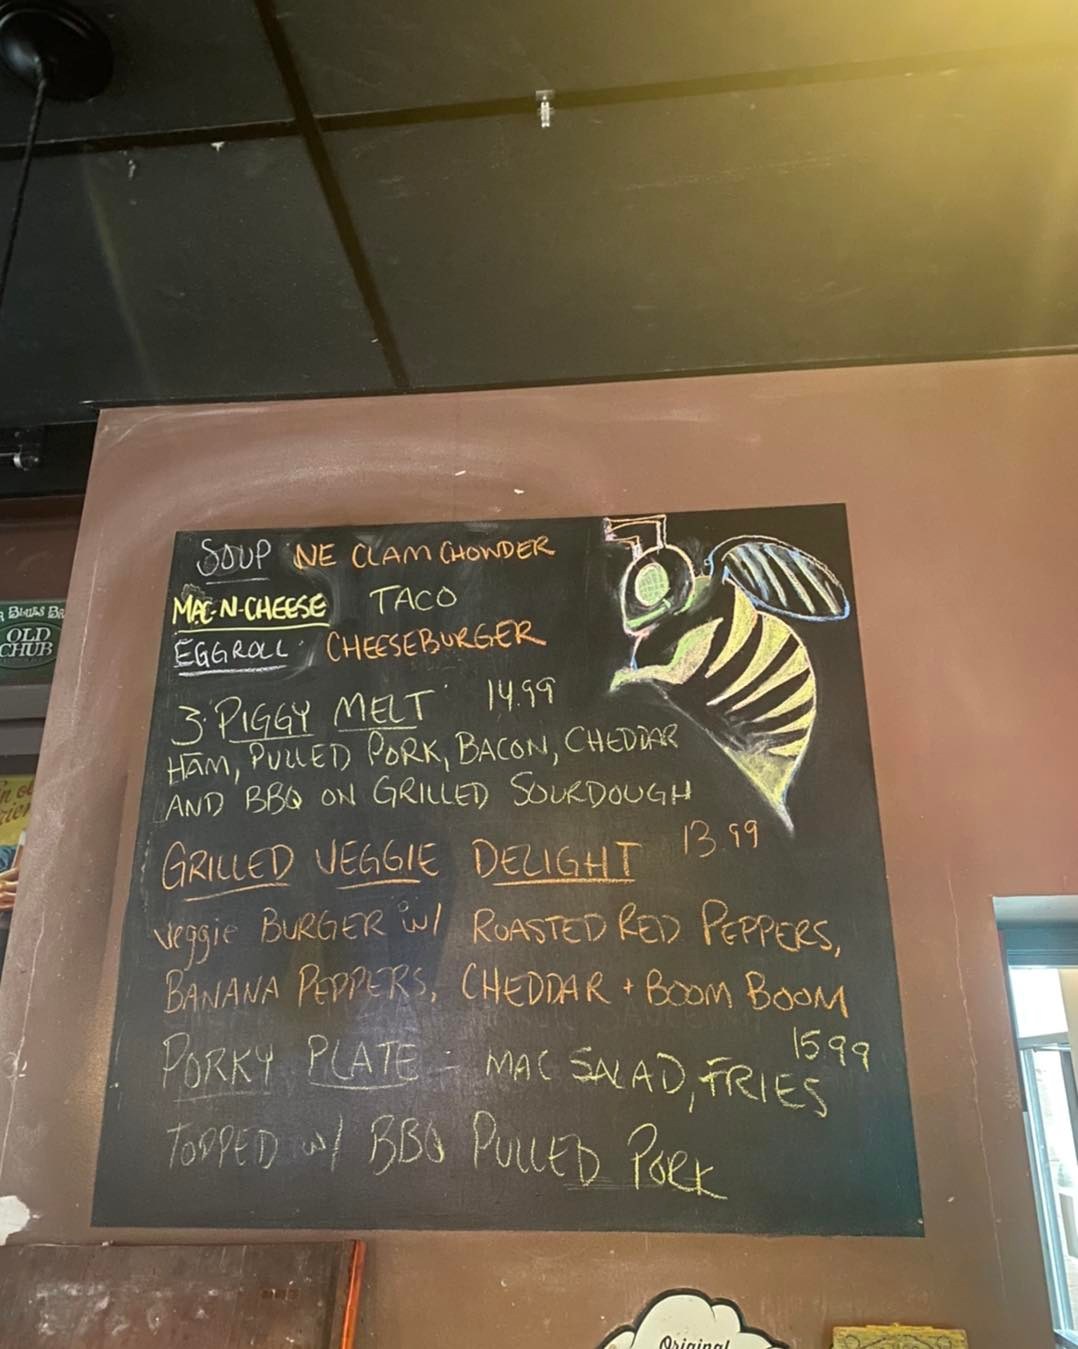 SOUP NE CLAM CHOWDER
MAC-N-CHEESE TACO
EGGROLL CHEESEBURGER
3 PIGGY MELT 14.99
HAM, PULLED PORK, BACON, CHEDDAR
AND BBQ ON GRILLED SOURDOUGH
GRILLED VEGGIE DELIGHT 13.99
veggie BURGER w/ ROASTED RED PEPPERS,
BANANA PEPPERS, CHEDDAR + BOOM BOOM
PORKY PLATE - MAC SALAD, FRIES 15.99
TOPPED w/ BBQ PULLED PORK
OLD
CHUB
Original